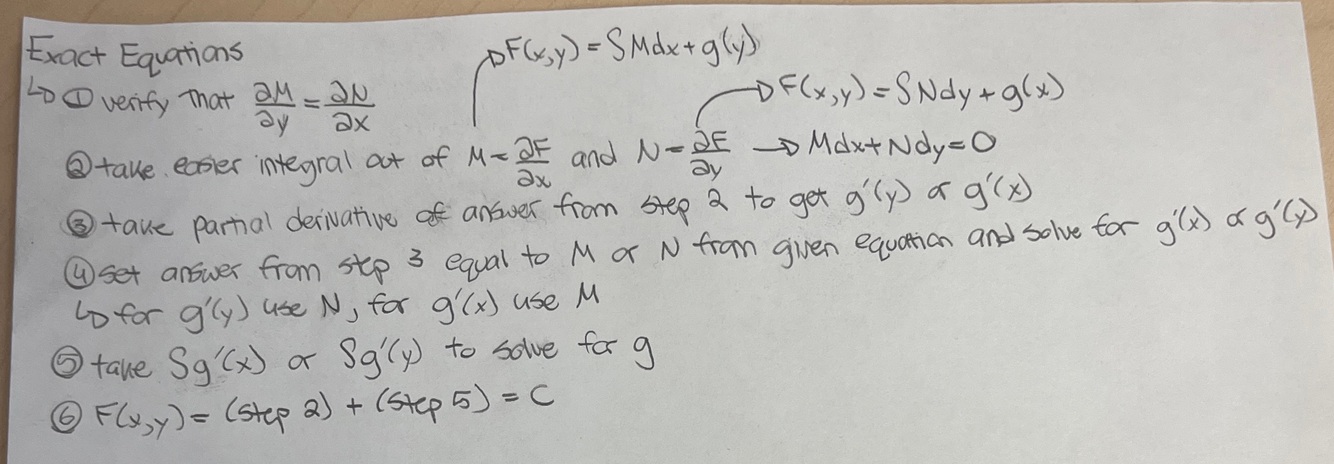 Exact Equations
F(x,y) = ∫Mdx + g(y)
↳ ① verify that ∂M/∂y = ∂N/∂x
F(x,y) = ∫Ndy + g(x)
② take easier integral out of M = ∂F/∂x and N = ∂F/∂y → Mdx + Ndy = 0
③ take partial derivative of answer from step 2 to get g'(y) or g'(x)
④ set answer from step 3 equal to M or N from given equation and solve for g'(x) or g'(y)
↳ for g'(y) use N, for g'(x) use M
⑤ take ∫g'(x) or ∫g'(y) to solve for g
⑥ F(x,y) = (step 2) + (step 5) = C